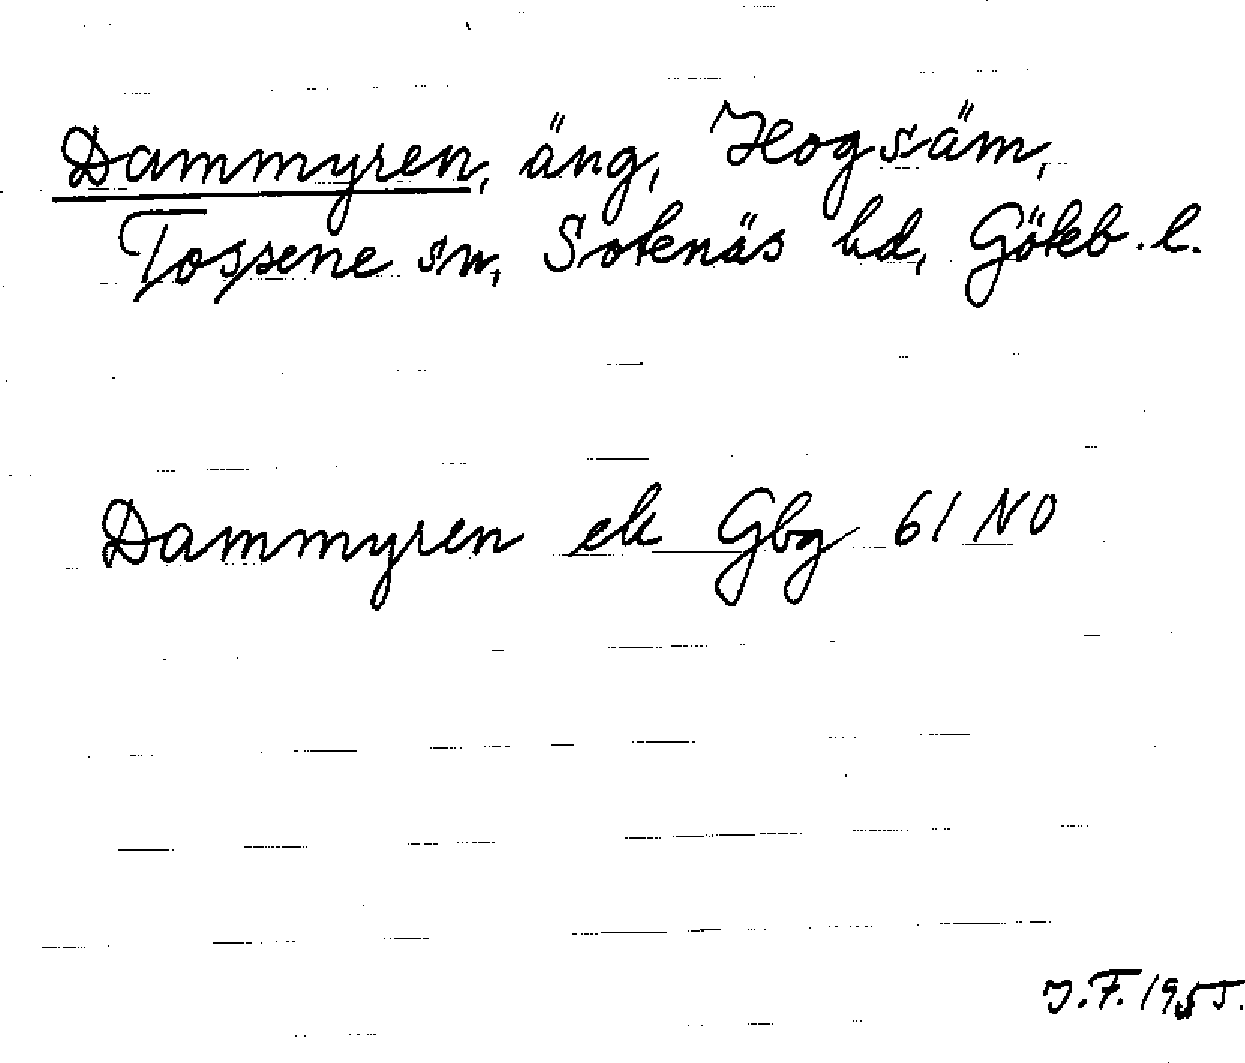 Dammyren, äng, Hogsäm,
Tossene sn, Sotenäs hd, Göteb. l.
Dammyren ek Gbg 61 NO
J.F. 1955.